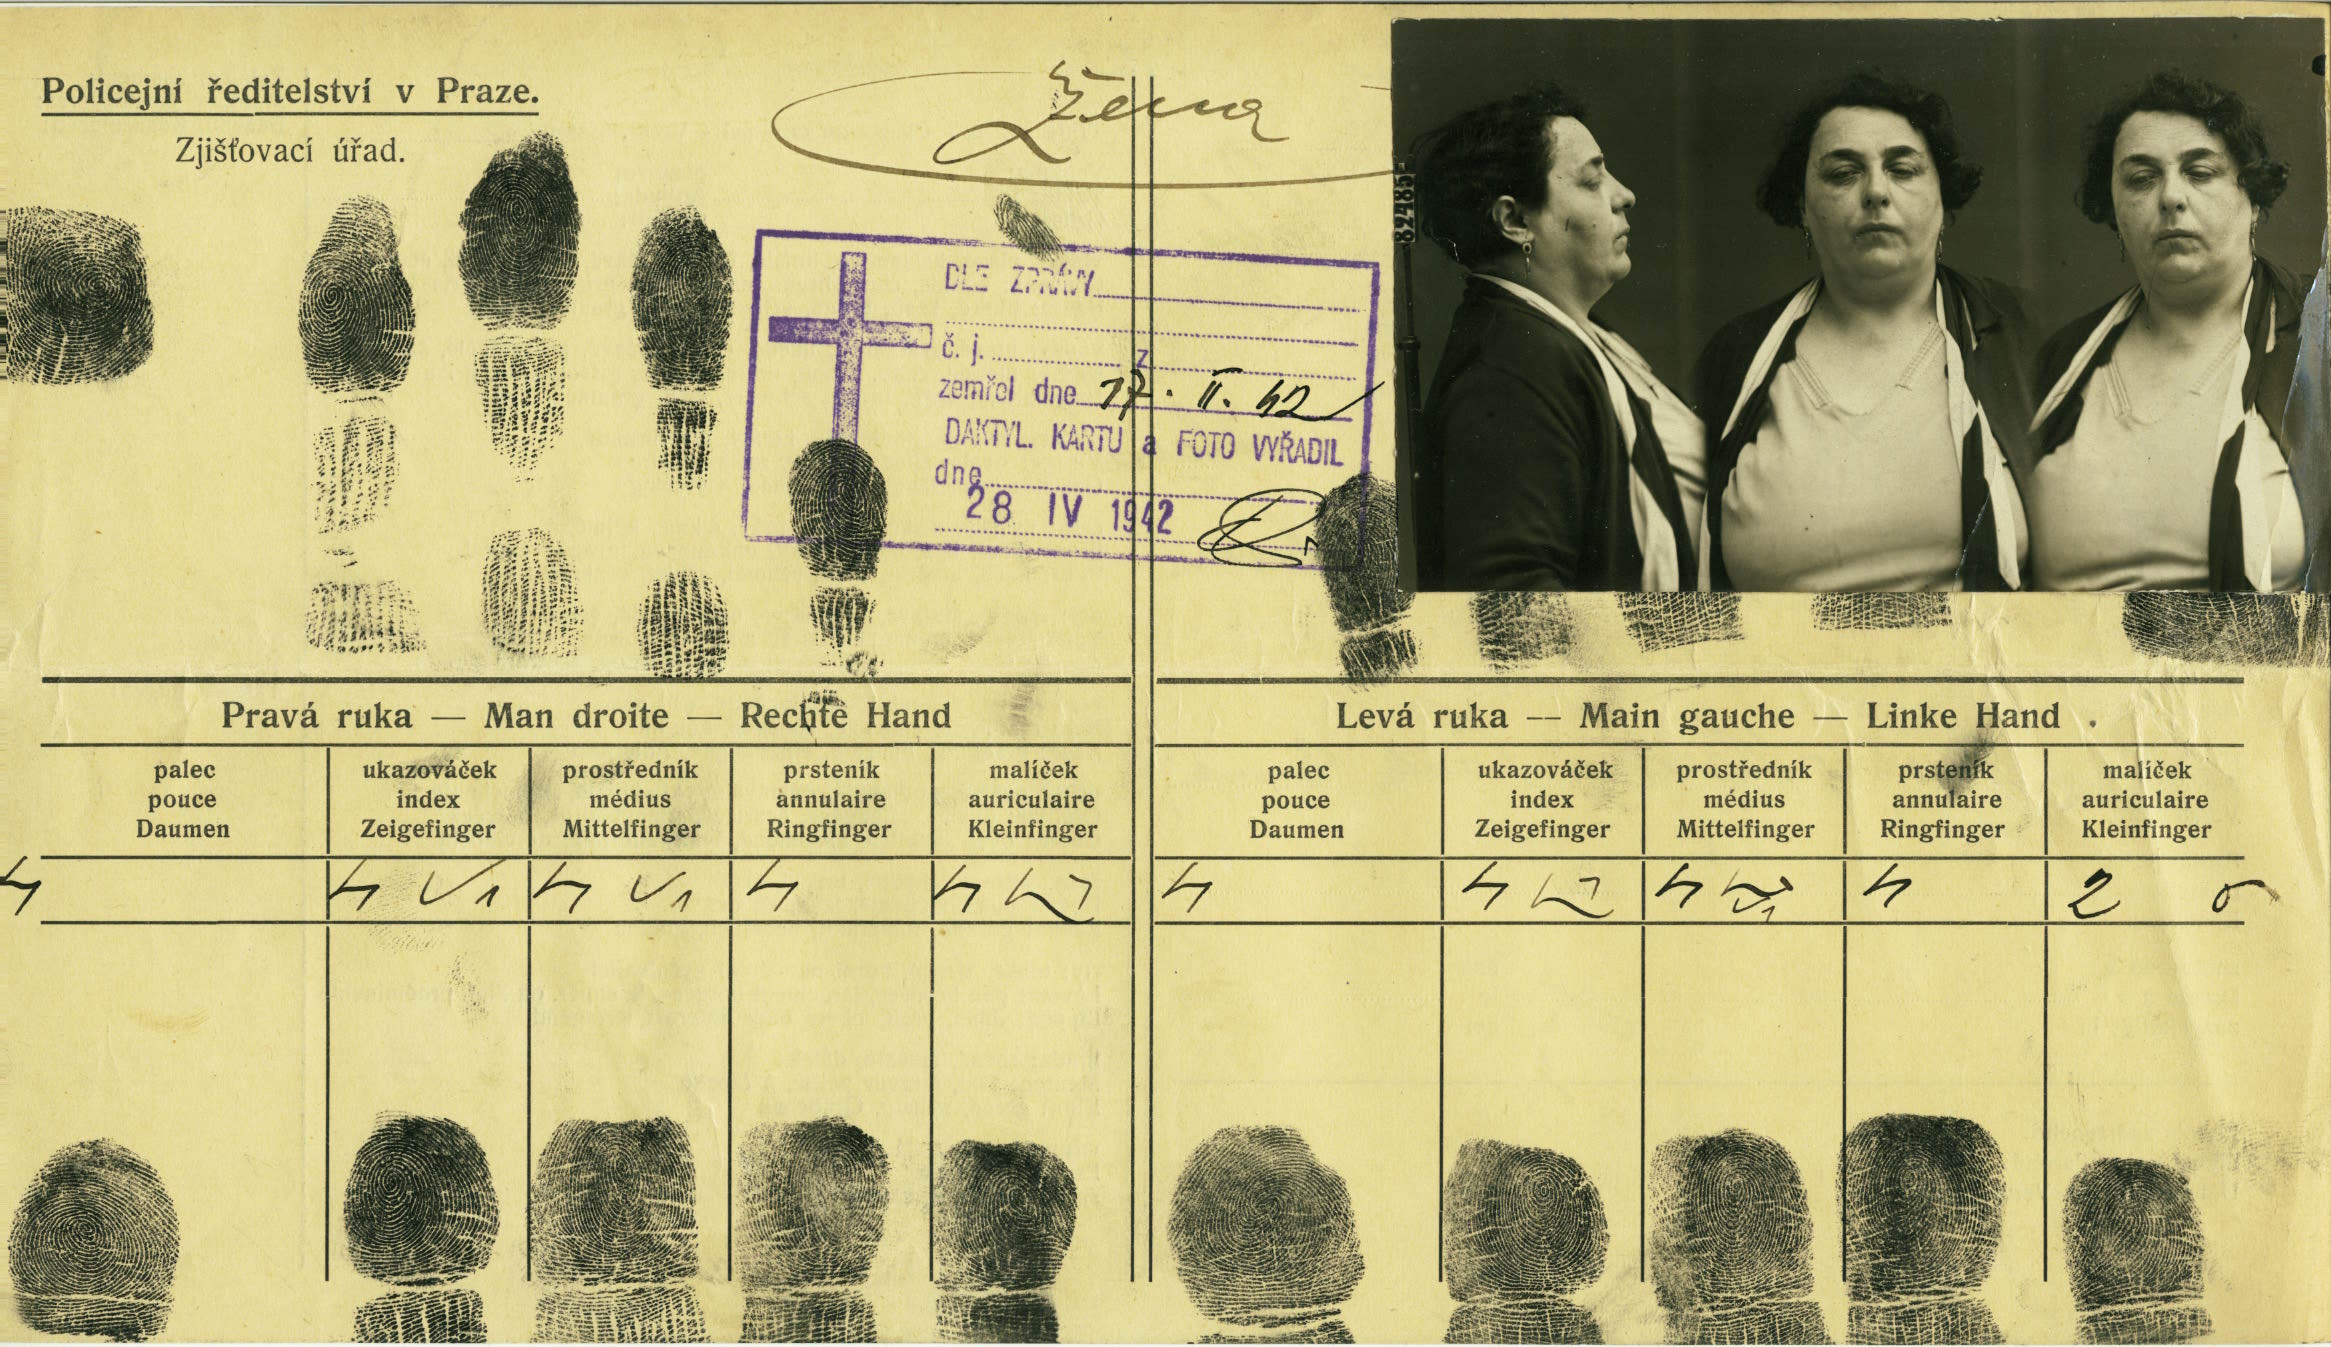 Policejní ředitelství v Praze.
Zjišťovací úřad.
Žena
82485
DLE ZPRÁVY
č. j. z
zemřel dne 17. II. 42
DAKTYL. KARTU a FOTO VYŘADIL
dne
28 IV 1942
Pravá ruka — Man droite — Rechte Hand
Levá ruka — Main gauche — Linke Hand
palec ukazováček prostředník prsteník malíček palec ukazováček prostředník prsteník malíček
pouce index médius annulaire auriculaire pouce index médius annulaire auriculaire
Daumen Zeigefinger Mittelfinger Ringfinger Kleinfinger Daumen Zeigefinger Mittelfinger Ringfinger Kleinfinger
2